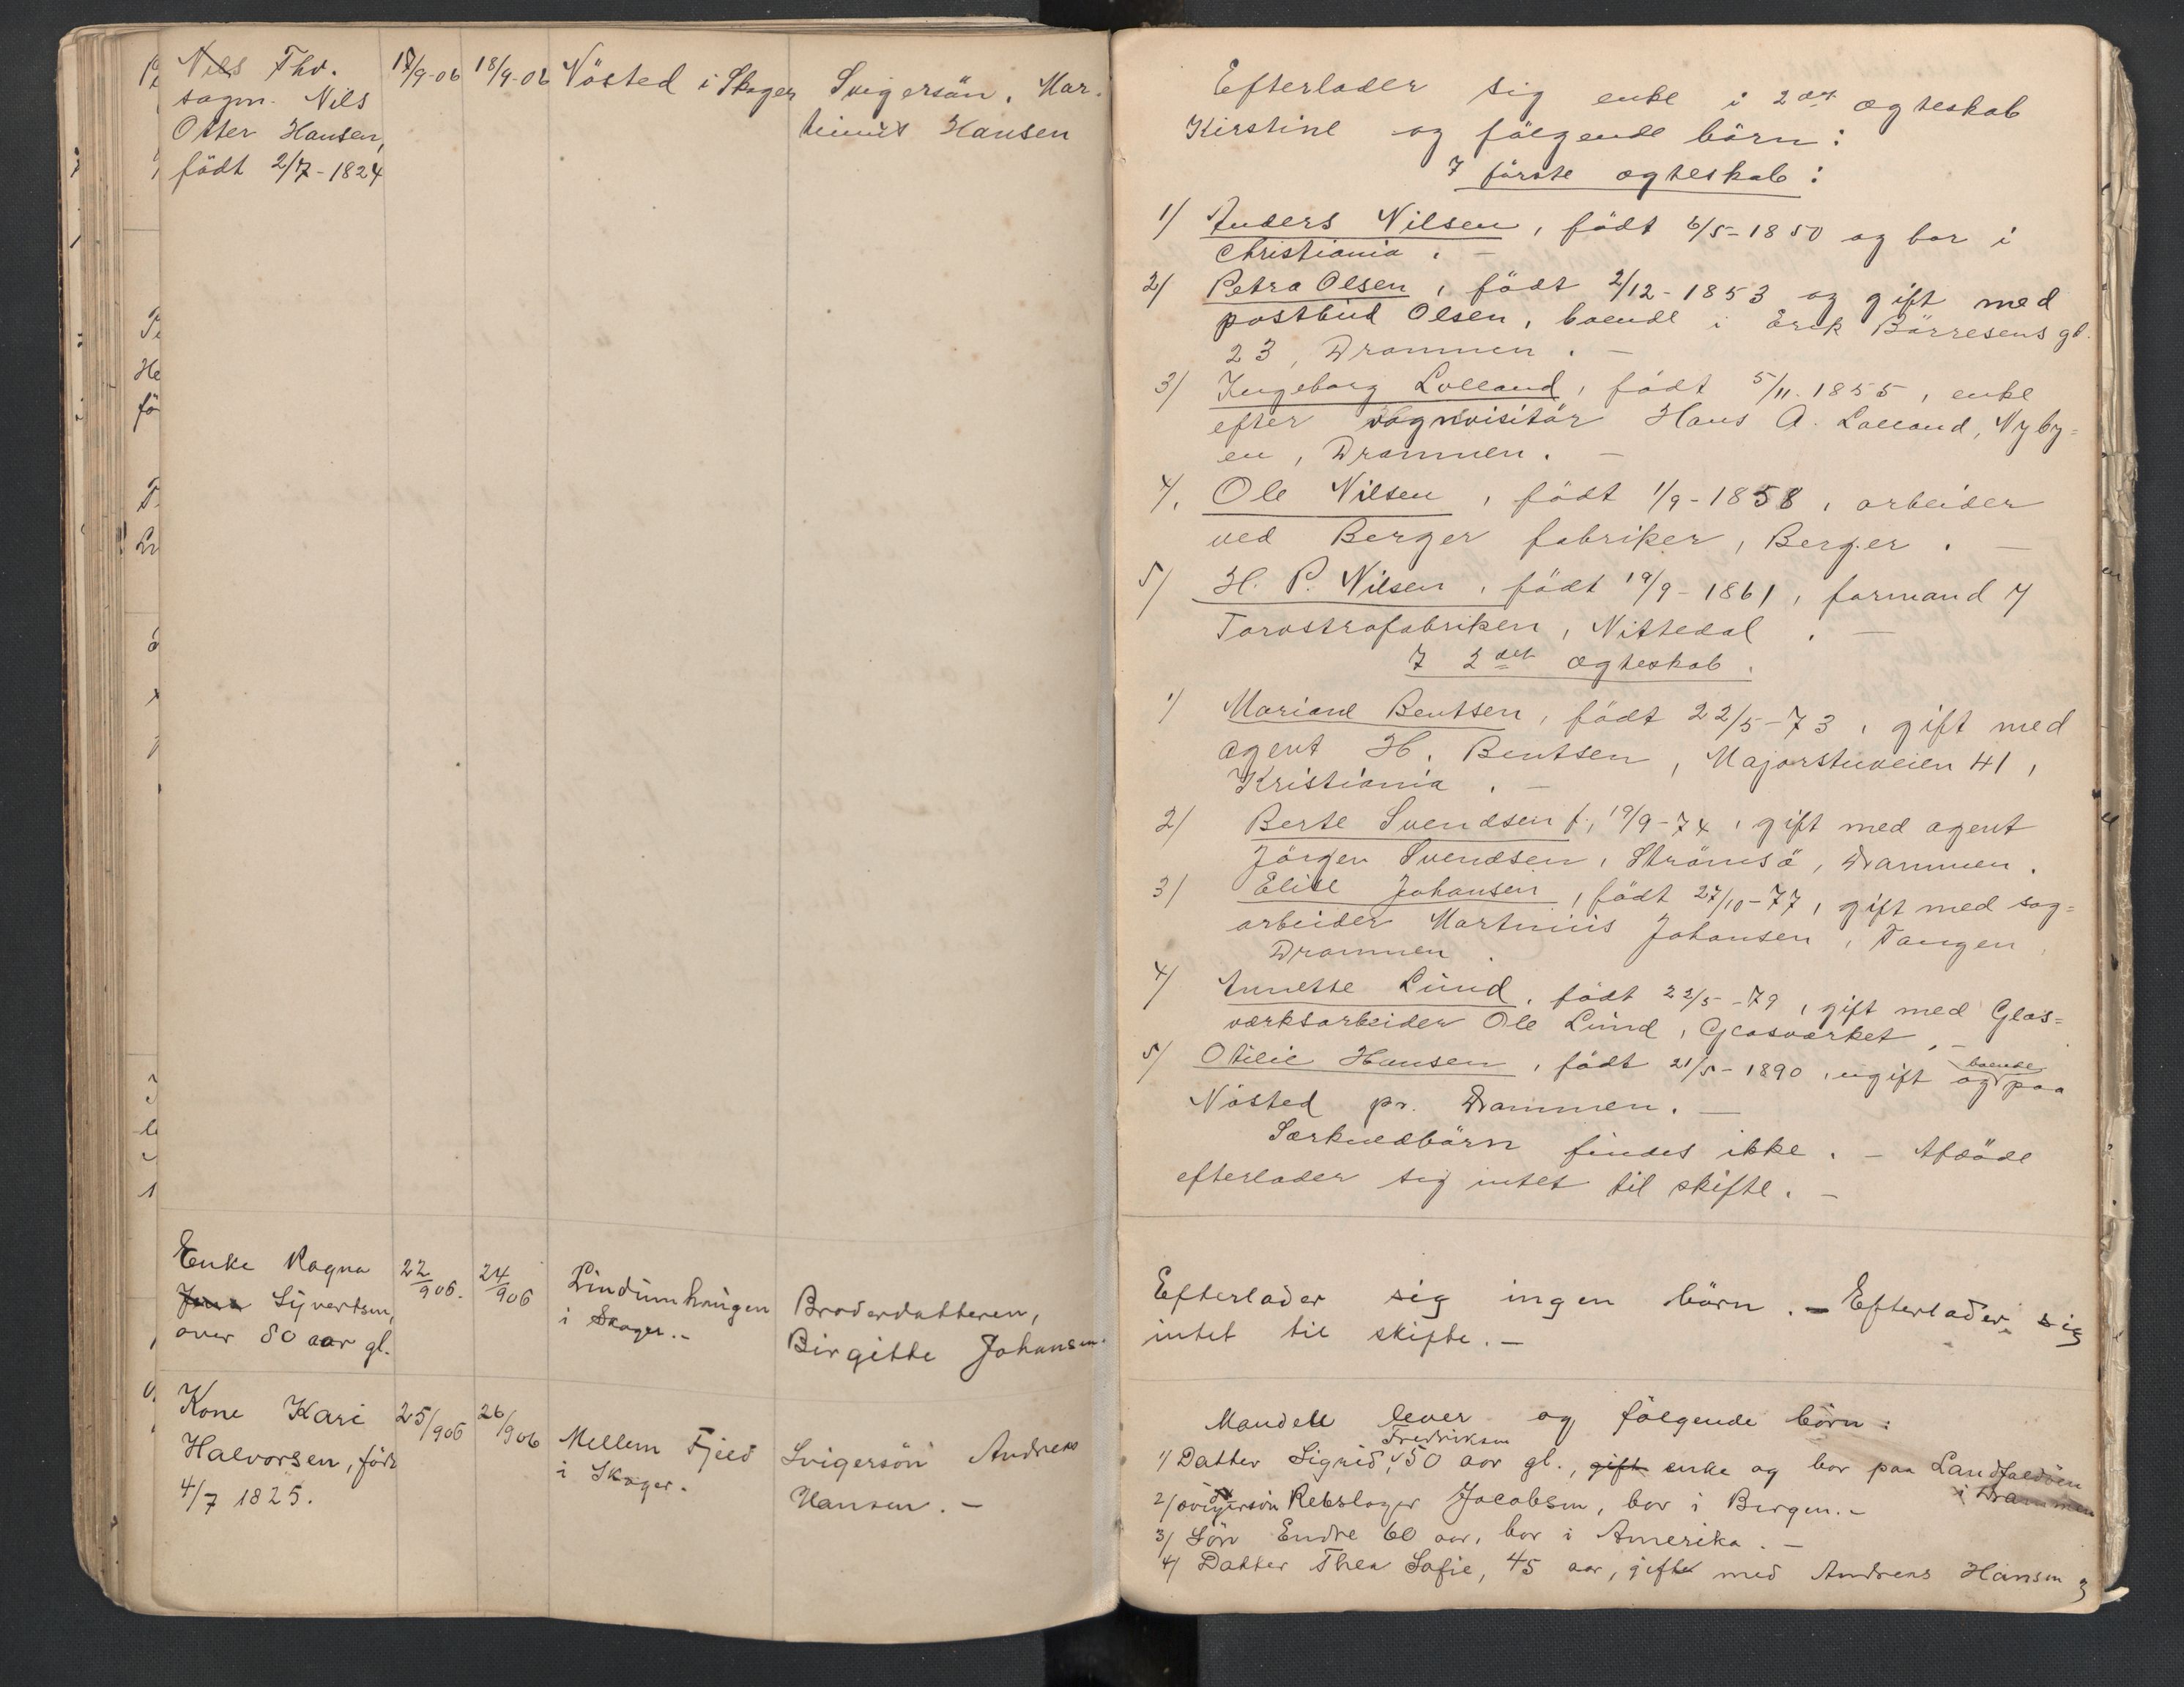 Nils Thv.
sagm. Nils
Otter Hansen,
född 2/7-1824
18/9-06
18/9-06
Nösted i Skoger
Svigersön, Mar-
tinius Hansen
Efterlader sig enke i 2det ægteskab
Kirstine og fölgende börn:
I förste ægteskab:
1/ Anders Nilsen, födt 6/5-1850 og bor i
Christiania. -
2/ Petra Olsen, födt 2/12-1853 og gift med
postbud Olsen, boende i Erik Börresens gd.
23, Drammen. -
3/ Ingeborg Lolland, födt 5/11.1855, enke
efter vognvisitör Hans A. Lolland, Nyby=
en, Drammen. -
4. Ole Nilsen, födt 1/9-1858, arbeider
ved Berger fabriker, Berger. -
5/ H. P. Nilsen, födt 19/9-1861, formand i
Torvströfabriken, Nittedal. -
I 2det ægteskab.
1/ Mariane Bentsen, födt 22/5-73, gift med
agent H. Bentsen, Majorstuveien 41,
Kristiania. -
2/ Berte Svendsen f. 19/9-74, gift med agent
Jörgen Svendsen, Strömsö, Drammen.
3/ Elise Johansen, födt 27/10-77, gift med sag=
arbeider Martinius Johansen, Tangen,
Drammen.
4/ Annette Lund, födt 22/5-79, gift med Glas=
værksarbeider Ole Lund, Glasværket. -
5/ Otilie Hansen, födt 21/5-1890, ugift og boende paa
Nösted pr. Drammen. -
Særkuldbörn findes ikke. - Afdöde
efterlader sig intet til skifte. -
Enke Ragna
Jena Sijvertsen,
over 80 aar gl.
22/906.
24/906
Lindumhougen
i Skoger.-
Broderdatteren,
Birgitte Johansen.
Efterlader sig ingen börn. - Efterlader sig
intet til skifte. -
Kone Kari
Halvorsen, födt
4/7 1825.
25/906
26/906
Mellem Fjeld
i Skoger.
Svigersön Andreas
Hansen. -
Manden lever og fölgende börn:
1/ Datter Sigrid Fredriksen, 50 aar gl., gift enke og bor paa Landfaldöen
i Drammen
2/ Svigersön Rebslager Jacobsen, bor i Bergen.-
3/ Sön Endre 60 aar, bor i Amerika. -
4/ Datter Thea Sofie, 45 aar, gift med Andreas Hansen